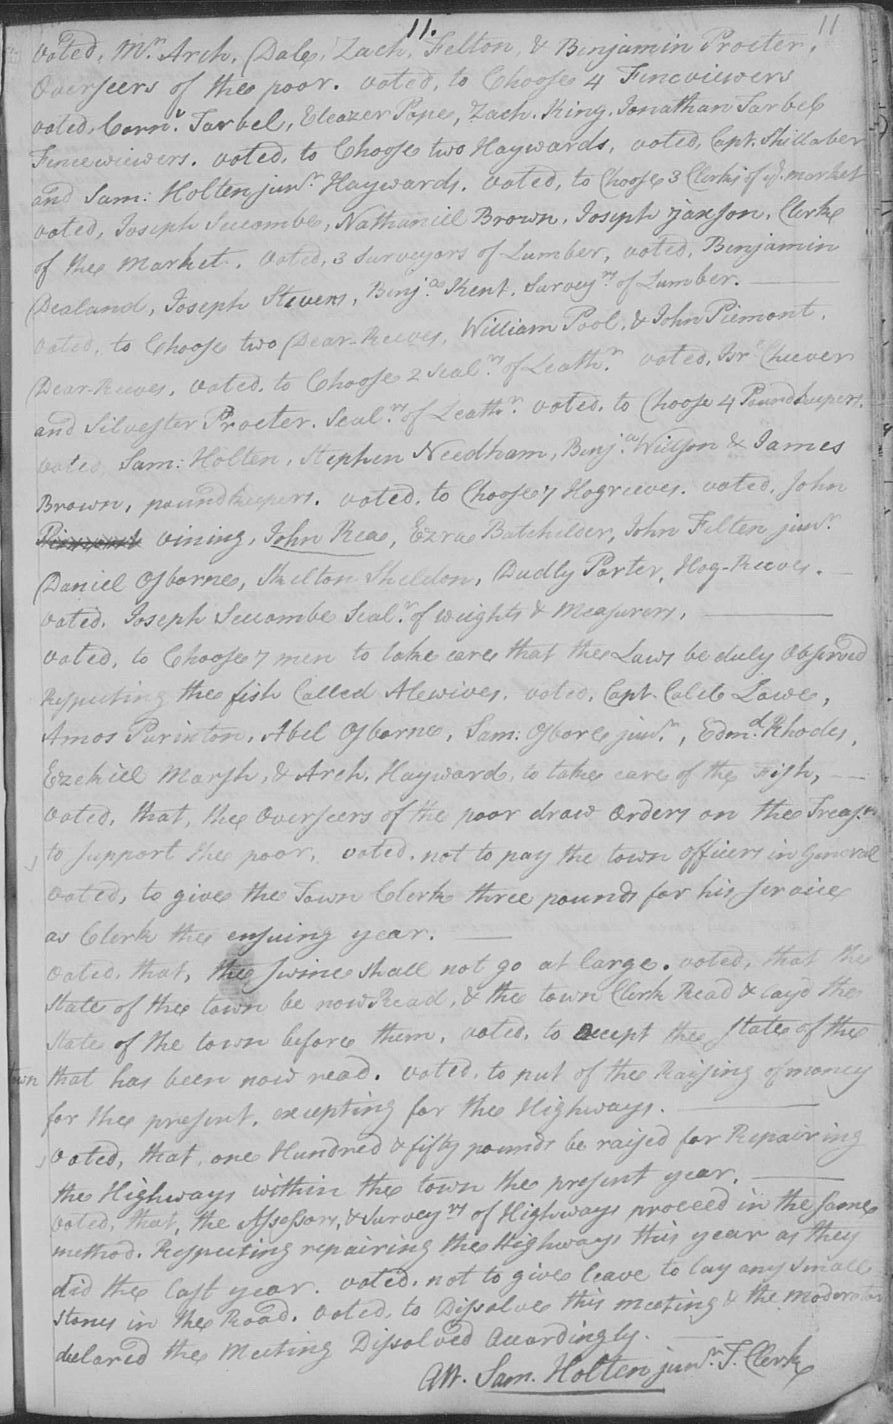 11.
11
voted, Mr. Arch. Dale, Zach. Felton, & Benjamin Procter,
Overseers of the poor. voted, to Choose 4 Fenceviewers
voted, Corns. Tarbel, Eleazer Pope, Zach. King, Jonathan Tarbel
Fencewiewers. voted, to Choose two Haywards, voted, Capt. Shillaber
and Sam: Holten junr. Haywards. voted, to Choose 3 Clerks of ye. market
voted, Joseph Seccombe, Nathaniell Brown, Joseph jaxson, Clerks
of the Market. voted, 3 Surveyors of Lumber, voted, Benjamin
Dealand, Joseph Stevens, Benja. Kent, Surveyrs. of Lumber.
voted, to Choose two Dear-Reeves, William Pool, & John Piemont,
Dear-Reeves, voted, to Choose 2 Sealrs. of Leathr. voted, Isr. Cheever
and Silvester Procter. Sealrs. of Leathr. voted, to Choose 4 Poundkeepers,
voted, Sam: Holten, Stephen Needham, Benja. Willson & James
Brown, poundkeepers. voted, to Choose 7 Hogreeves. voted, John
vining, John Rea, Ezra Batchelder, John Felten junr.
Daniel Osborne, Skelton Sheldon, Dudly Porter, Hog-Reeves.
voted, Joseph Seccombe Sealr. of weights & Measurers,
voted, to Choose 7 men to take care that the Laws be duly observed
Respecting the fish Called Alewives. voted, Capt. Caleb Lowe,
Amos Purinton, Abel Osborne, Sam: Osbore junr., Edmd. Rhodes,
Ezekiell Marsh, & Arch. Hayward, to take care of the Fish,
voted, that, the Overseers of the poor draw orders on the Treasr.
to support the poor, voted, not to pay the town officers in General
voted, to give the Town Clerk three pounds for his service
as Clerk the ensuing year.
voted, that, the swine shall not go at large. voted, that the
State of the town be now Read, & the town Clerk Read & lay'd the
State of the town before them, voted, to accept the State of the
town that has been now read. voted, to put of the Raising of money
for the present, excepting for the Highways.
voted, that, one Hundred & fifty pounds be raised for Repairing
the Highways within the town the present year.
voted, that, the Assessors, & Surveyrs. of Highways proceed in the same
method. Respecting repairing the Highways this year as they
did the last year. voted, not to give leave to lay any small
stones in the Road. voted, to Dissolve this meeting & the moderator
declared the Meeting Dissolved accordingly.
Att. Sam. Holten junr. T. Clerk